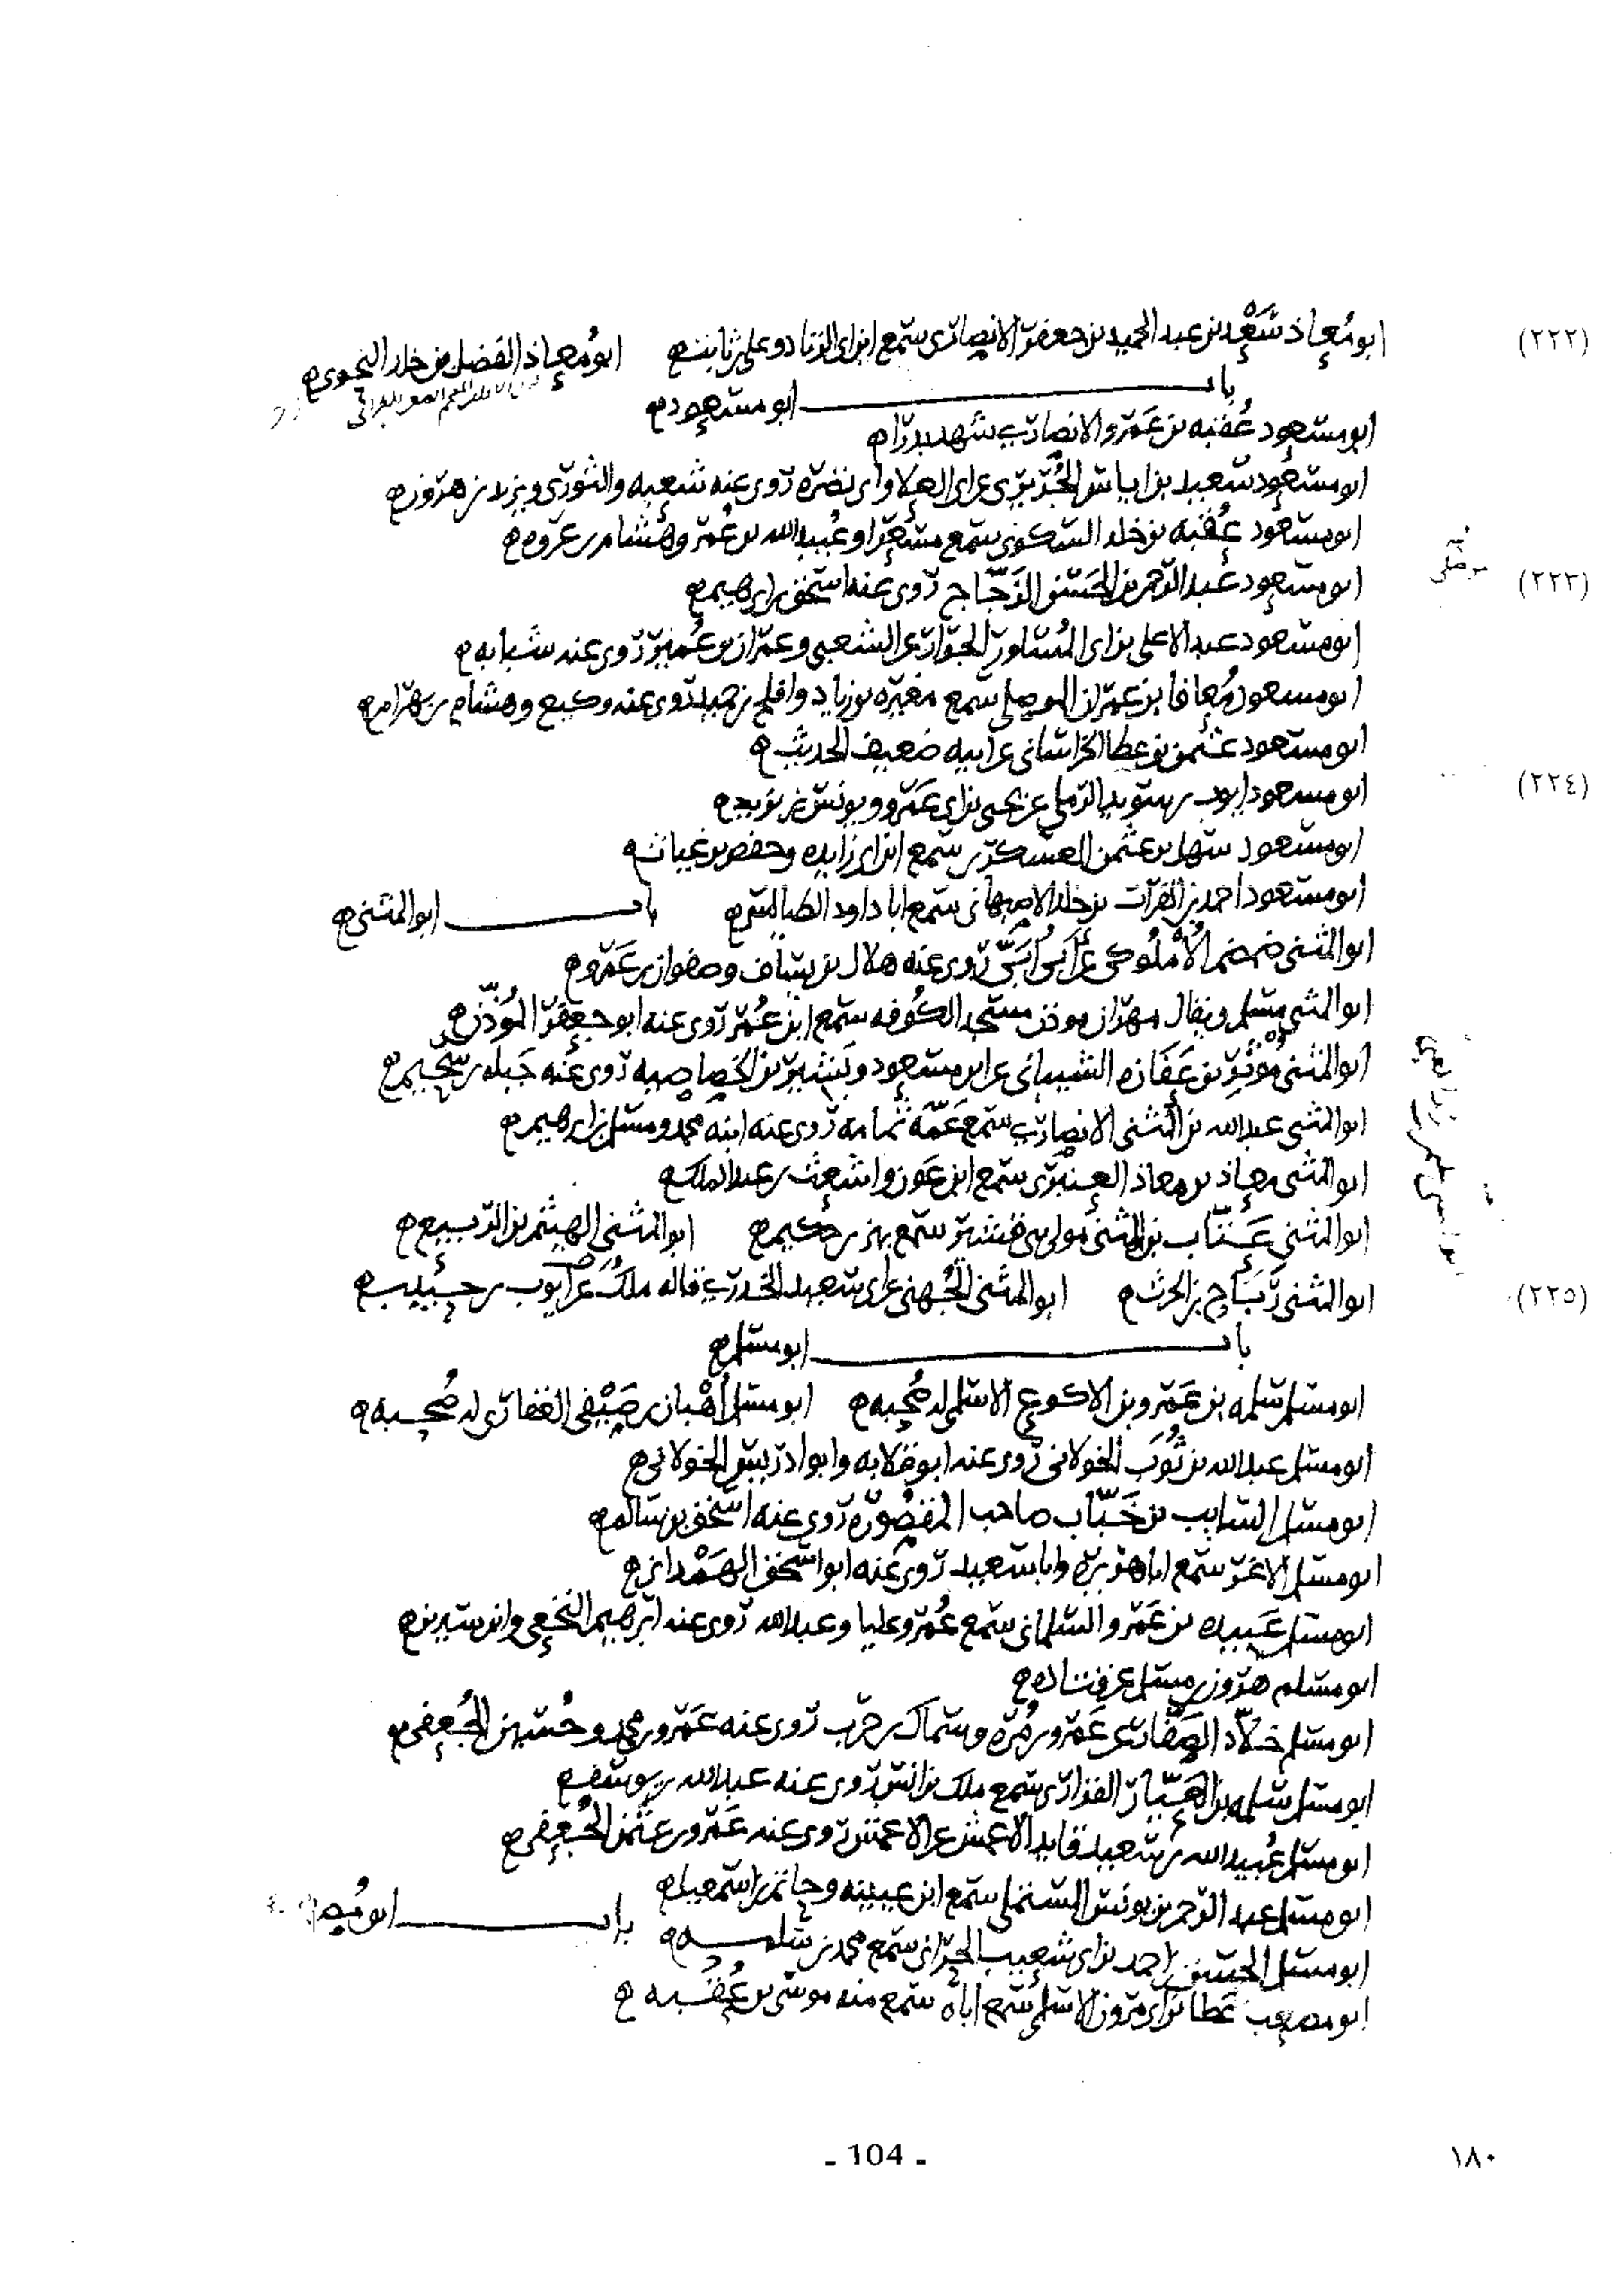 (٢٢٢)
ابو مُعاذ سَعْد بن عبد الحميد بن جعفر الانصاري سمع ابن ابي الزناد وعلي بن ثابت ابو مُعاذ الفضل بن خلد النحوي
باب ابو مسعود
ابو مسعود عُقبه بن عَمرو الانصاري شهد بدرا
ابو مسعود سعيد بن اياس الجُريري عن ابي العلا وابي نضره روى عنه شعبه والثوري ويزيد بن هرون
ابو مسعود عُقبه بن خلد السكوني سمع مِسعرا وعُبيد الله بن عُمر وهشام بن عروه
(٢٢٣)
ابو مسعود عبد الرحمن بن الحسن الزجّاج روى عنه اسحق بن ابرهيم
موصلي
ابو مسعود عبد الاعلى بن ابي المُساور الجرار عن الشعبي وعمران بن عُمير روى عنه شبابه
ابو مسعود مُعافا بن عمران الموصلي سمع مغيره بن زياد وافلح بن حميد روى عنه وكيع وهشام بن بهرام
ابو مسعود عثمن بن عطا الخراساني عن ابيه ضعيف الحديث
(٢٢٤)
ابو مسعود ايوب بن سويد الرملي عن يحيى بن ابي عَمرو ويونس بن يزيد
ابو مسعود سهل بن عثمن العسكري سمع ابن ابي زايده وحفص بن غياث
ابو مسعود احمد بن الفرات بن خلد الاصبهاني سمع ابا داود الطيالسي باب ابو المثنى
ابو المثنى ضمضم الأُملُوكي عن ابي أُبَيّ روى عنه هلال بن يساف وصفوان بن عَمرو
ابو المثنى مسلم ويقال مهران موذن مسجد الكوفه سمع ابن عُمر روى عنه ابو جعفر المُؤذّن
ابو المثنى مُوثِر بن عَفَازه الشيباني عن ابن مسعود وبَشير بن الخصاصيه روى عنه جَبله بن سُحيم
ابو المثنى عبد الله بن المُثنى الانصاري سمع عَمّه ثمامه روى عنه ابنه محمد ومسلم بن ابرهيم
ابو المثنى معاذ بن معاذ العنبري سمع ابن عون واشعث بن عبد الملك
ابو المثنى عَتّاب بن المثنى مولى بني قشير سمع بهز بن حكيم ابو المثنى الهيثم بن الربيع
(٢٢٥)
ابو المثنى رَبَاح بن الحرث ابو المثنى الجُهني عن ابي سعيد الخدري قاله ملك عن ايوب بن حبيب
باب ابو مسلم
ابو مسلم سلمه بن عَمرو بن الاكوع الاسلمي له صُحبه ابو مسلم أُهْبان بن صَيْفي الغفاري له صُحبه
ابو مسلم عبد الله بن ثُوَب الخولاني روى عنه ابو قلابه وابو ادريس الخولاني
ابو مسلم السايب بن خَبّاب صاحب المقصُوره روى عنه اسحق بن سالم
ابو مسلم الاغر سمع ابا هريره وابا سعيد روى عنه ابو اسحق الهَمْداني
ابو مسلم عَبيده بن عَمرو السلماني سمع عُمر وعليا وعبد الله روى عنه ابرهيم النخعي وابن سيرين
ابو مسلم هرون بن مسلم عن قتاده
ابو مسلم خلاّد الصفّار عن عَمرو بن مُره وسماك بن حرب روى عنه عَمرو بن محمد وحُسين الجُعفي
ابو مسلم سلمه بن الهَيّار الفزاري سمع ملك بن انس روى عنه عبد الله بن يوسف
ابو مسلم عُبيد الله بن سعيد قايد الاعمش عن الاعمش روى عنه عَمرو بن عثمن الجُعفي
ابو مسلم عبد الرحمن بن يونس المستملي سمع ابن عيينه وحاتم بن اسمعيل
باب ابو مُصعب
ابو مسلم الحسن بن احمد بن ابي شعيب الحراني سمع محمد بن سلمه
ابو مصعب عَطا بن ابي مروان الاسلمي سمع اباه سمع منه موسى بن عُقبه
- 104 -
١٨٠